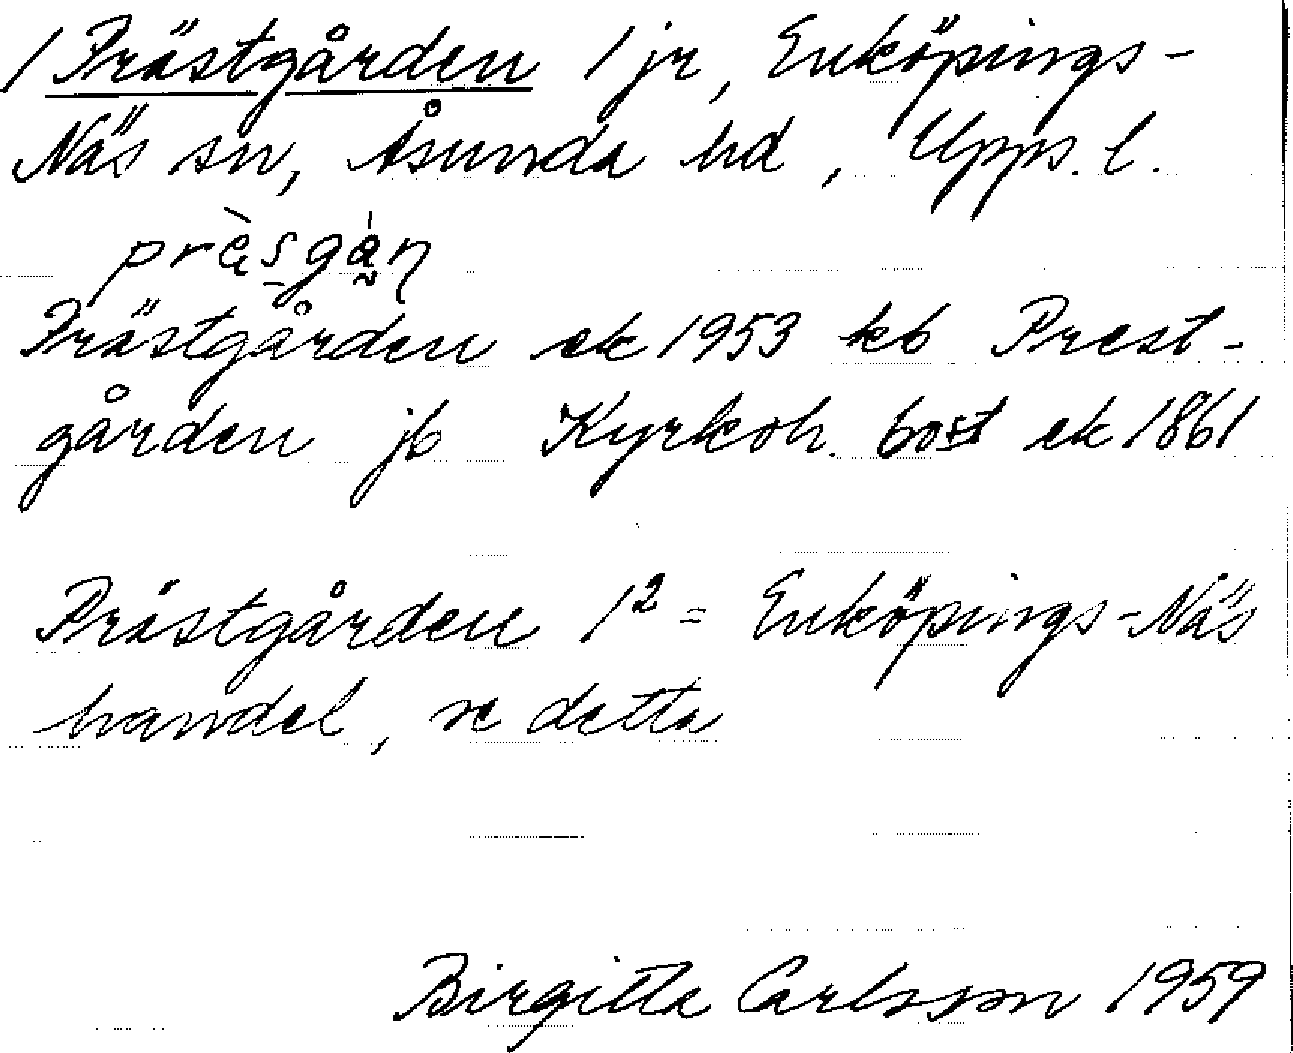 / Prästgården 1 jr, Enköpings-
Näs sn, Åsunda hd, Upps. l.
Prästgården ek 1953 kb Prest-
gården jb Kyrkoh. bost ek 1861
Prästgården 1² = Enköpings-Näs
handel, se detta
Birgitta Carlsson 1959